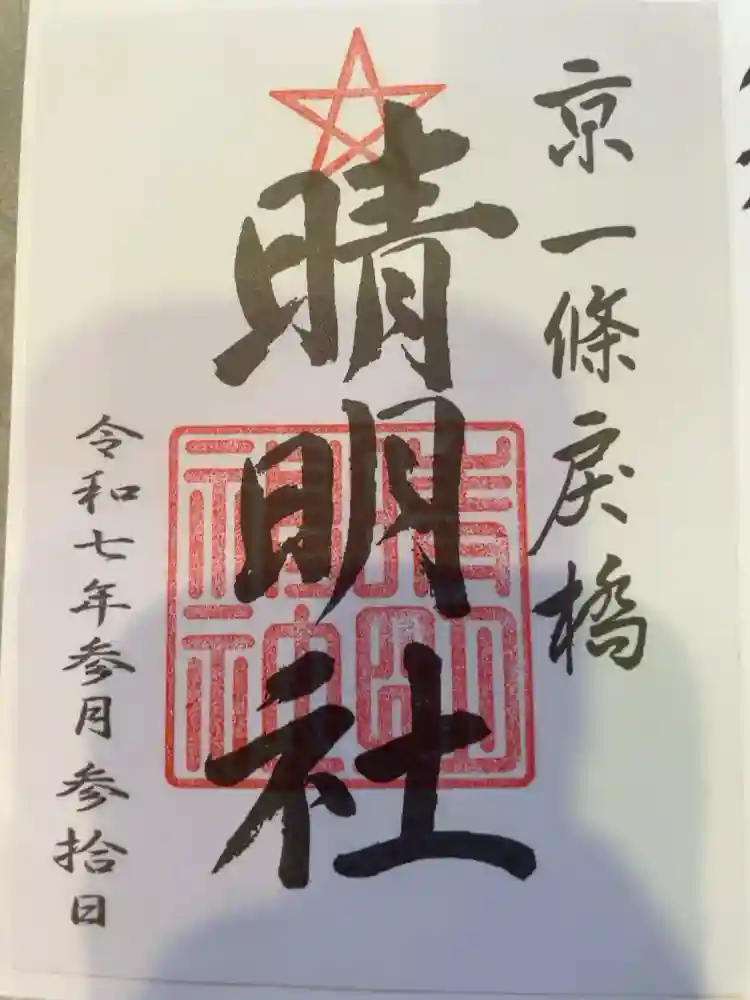 京一條戻橋
晴明社
晴明
神社
令和七年参月参拾日